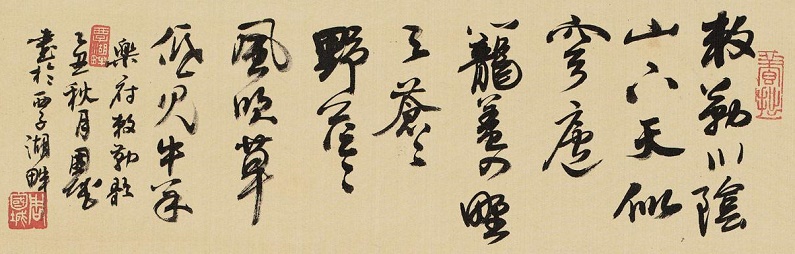 敕勒川陰
山下天似
穹廬
籠蓋四野
天蒼〻
野茫〻
風吹草
低見牛羊
樂府敕勒歌
乙丑秋月國城
書於西子湖畔
周國城